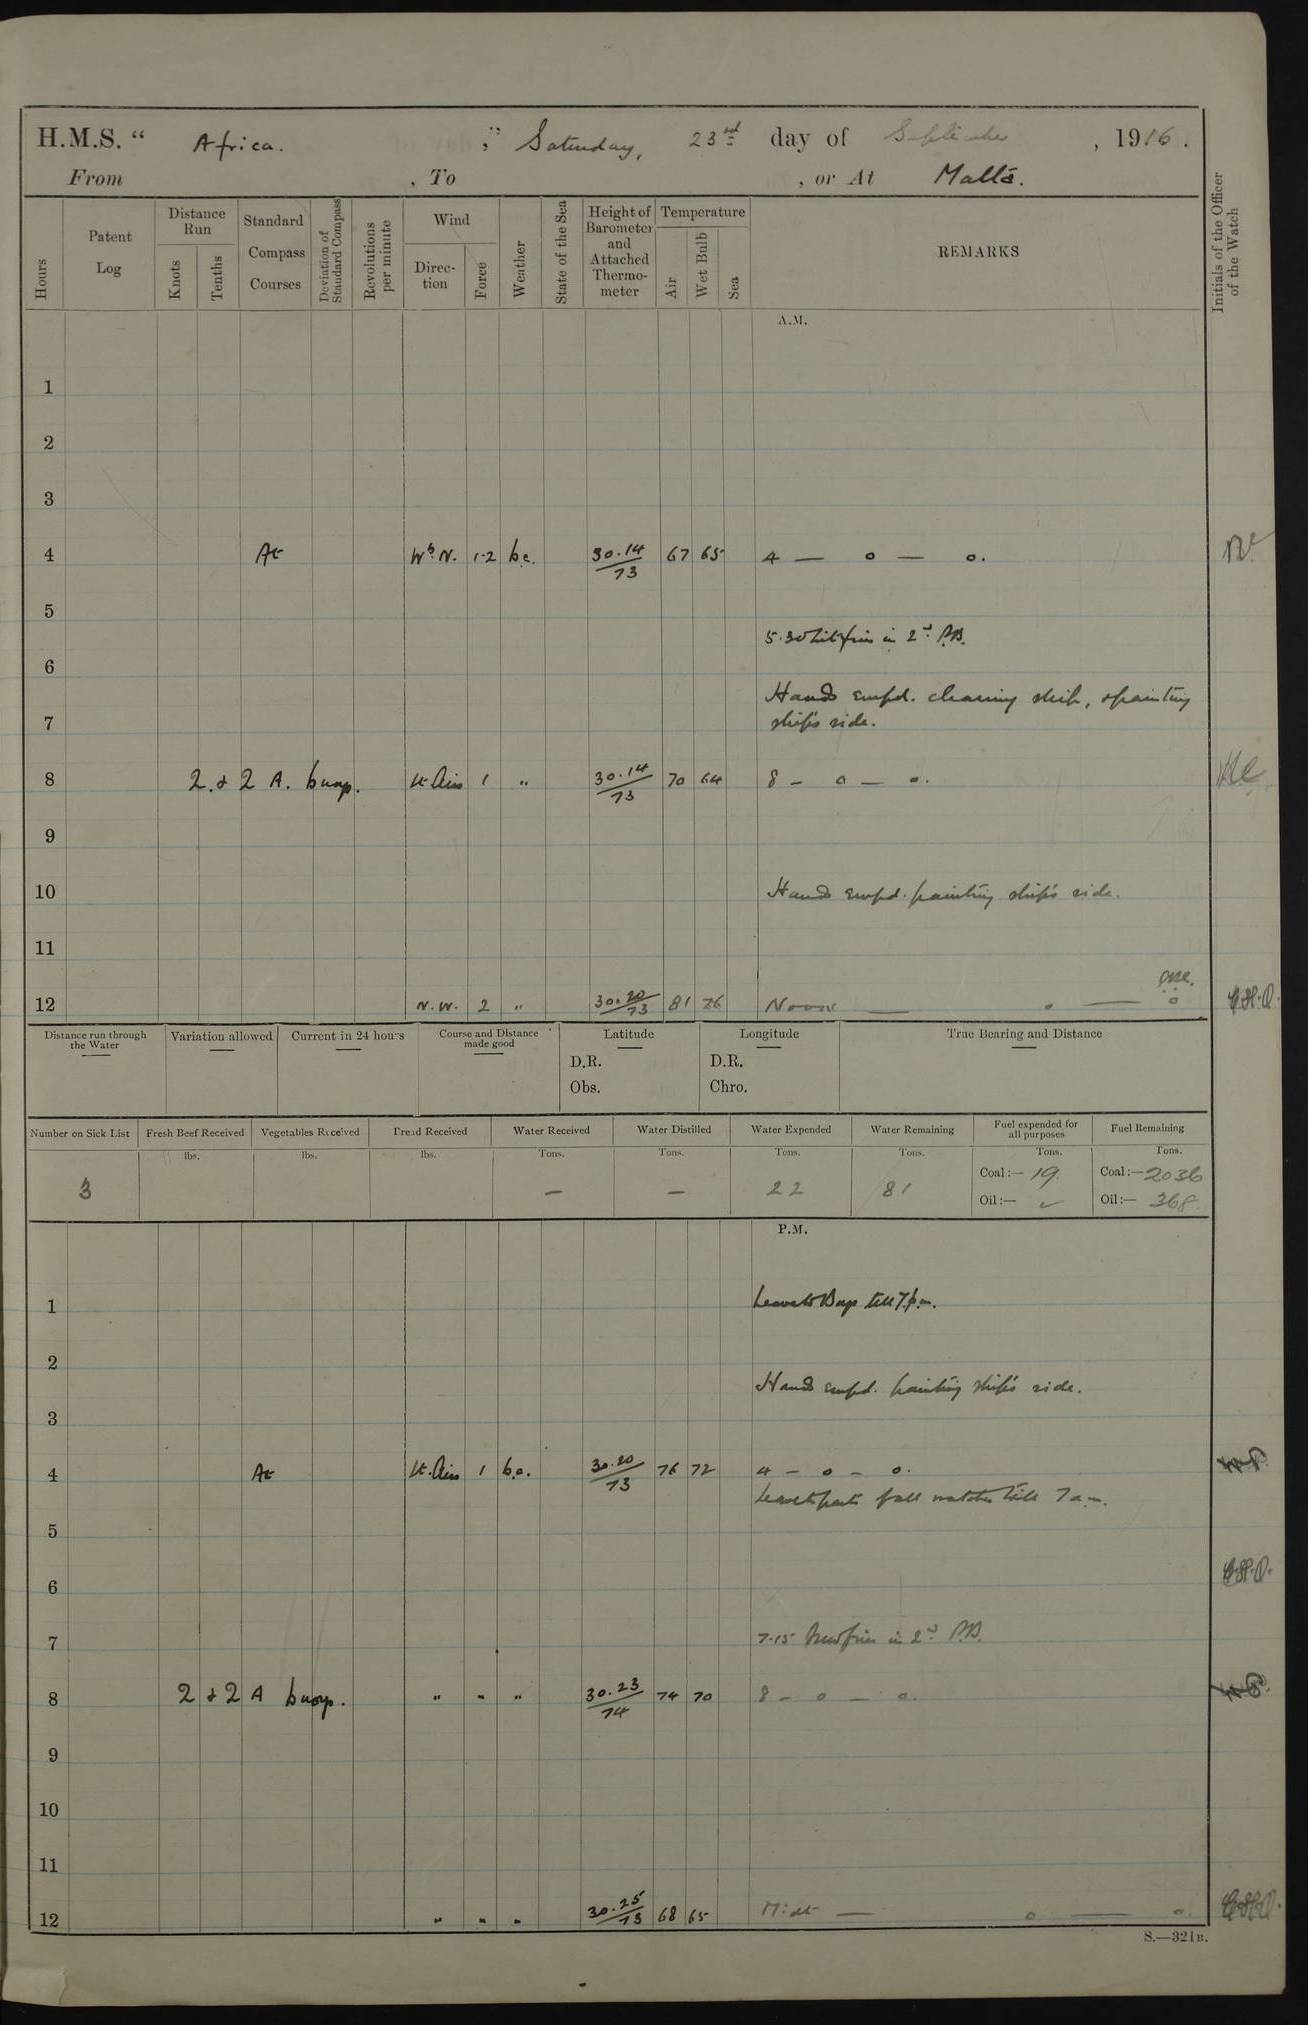 H.M.S. " Africa. ", Saturday, 23rd day of September, 1916.
From , To , or At Malta.
Hours
Patent Log
Distance Run
Knots
Tenths
Standard Compass Courses
Deviation of Standard Compass
Revolutions per minute
Wind
Direction
Force
Weather
State of the Sea
Height of Barometer and Attached Thermometer
Temperature
Air
Wet Bulb
Sea
REMARKS
Initials of the Officer of the Watch
A.M.
1
2
3
4 At W b N. 1-2 b.c. 30.14/73 67 65 4 — o — o.
5
5.30 Lit fires in 2nd P.B.
6
Hands empd. cleaning ship, & painting
7 ship's side.
8 2. & 2 A. buoys. Lt. Airs 1 " 30.14/73 70 64 8 — o — o.
9
10 Hands empd. painting ship's side.
11
12 N.W. 2 " 30.20/73 81 76 Noon — o — o C.H.Q.
Distance run through the Water
Variation allowed
Current in 24 hours
Course and Distance made good
Latitude
D.R.
Obs.
Longitude
D.R.
Chro.
True Bearing and Distance
Number on Sick List
Fresh Beef Received
Vegetables Received
Bread Received
Water Received
Water Distilled
Water Expended
Water Remaining
Fuel expended for all purposes
Fuel Remaining
lbs. lbs. lbs. Tons. Tons. Tons. Tons. Tons. Tons.
3 — — 22 81 Coal:— 19. Coal:— 2036
Oil:— ✓ Oil:— 368.
P.M.
1 Leave to Boys till 7 p.m.
2
Hands empd. painting ship's side.
3
4 At Lt. Airs 1 b.c. 30.20/73 76 72 4 — o — o.
Leave to part of all watches till 7 a.m.
5
6 C.H.Q.
7 7.15 Drew fires in 2nd P.B.
8 2 & 2 A buoys. " " " 30.23/74 74 70 8 — o — o.
9
10
11
12 " " " 30.25/73 68 65 Midt — o — o. C.H.Q.
S.—321B.